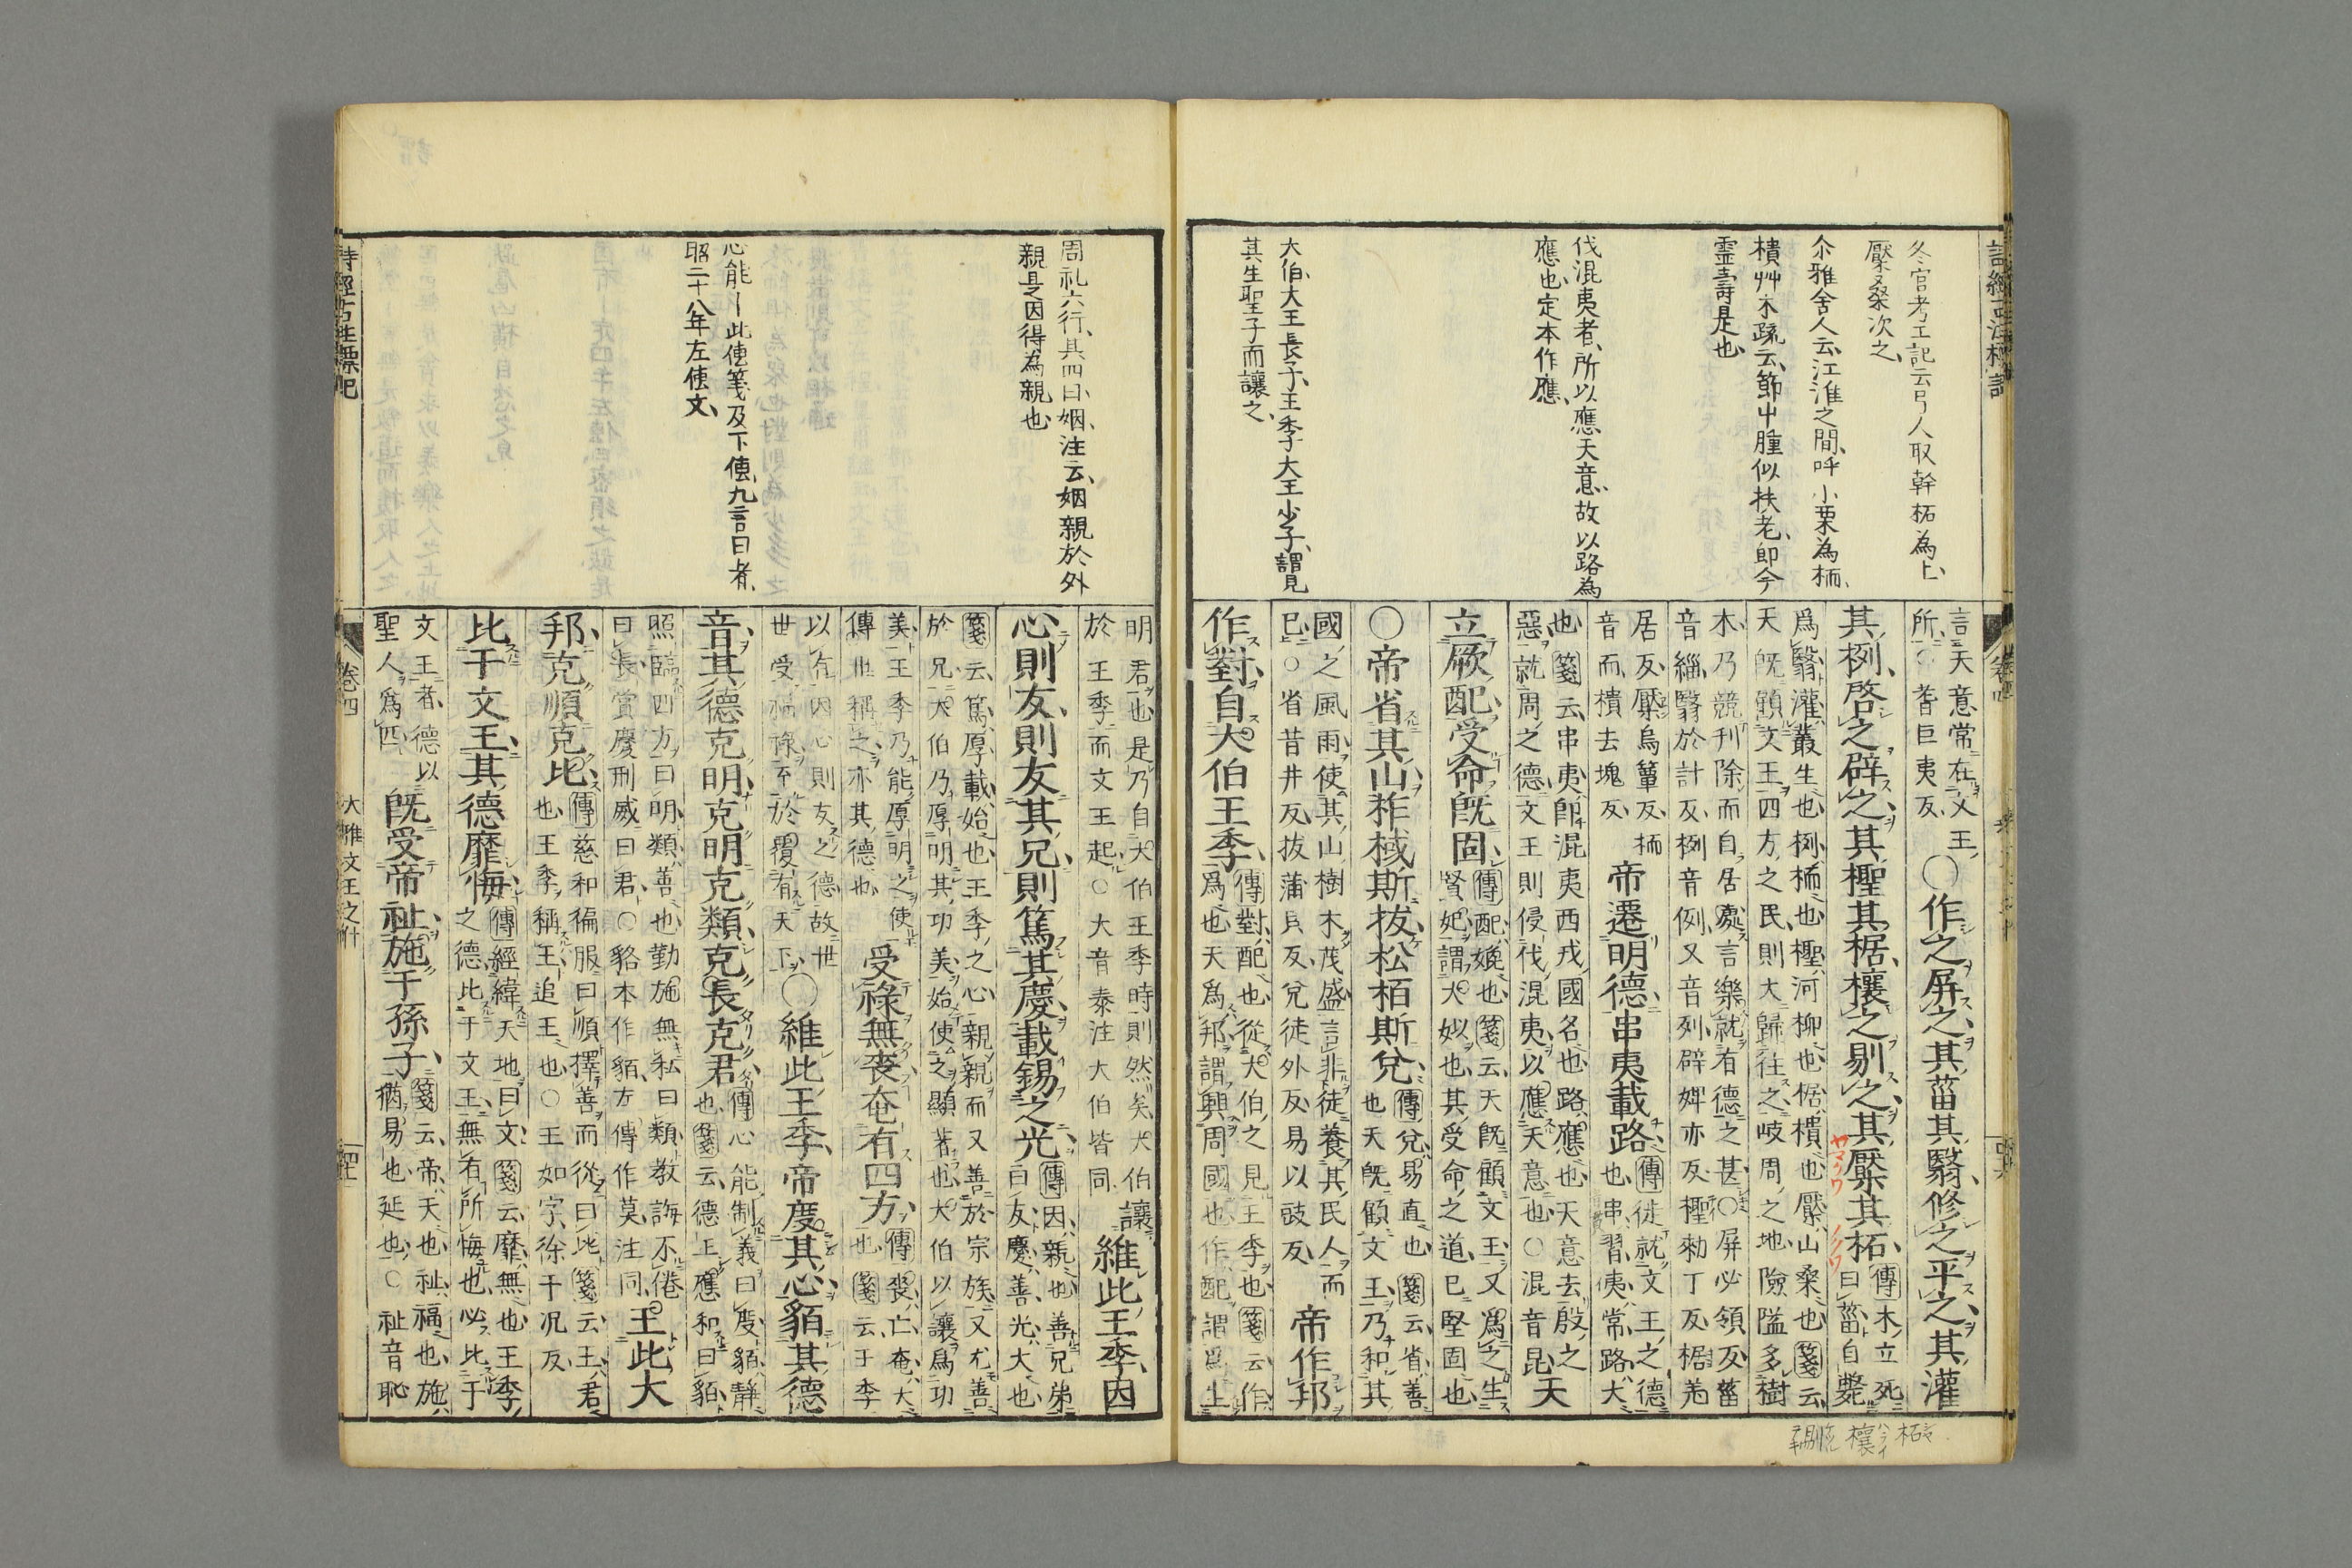 冬官考工記云弓人取幹柘為上
檿桑次之
尒雅舍人云江淮之間呼小栗為栭
樻艸木疏云節中腫似扶老即今
霊壽是也
伐混夷者所以應天意故以路為
應也定本作應
大伯大王長子王季大王少子謂見
其生聖子而讓之
言天意常在文王
所○耆巨夷反
○作之屏之其菑其翳修之平之其灌
其栵啓之辟之其檉其椐攘之剔之其檿其柘
傳木立死
曰菑自斃
爲翳灌叢生也栵栭也檉河柳也椐樻也檿山桑也箋云
天既顧文王四方之民則大歸往之岐周之地險隘多樹
木乃競刊除而自居處言樂就有德之甚○屏必領反菑
音緇翳於計反栵音例又音列辟婢亦反檉勑丁反椐羌
居反檿烏簟反栭
音而樻去塊反
帝遷明德串夷載路
傳徙就文王之德
也串習夷常路大
也箋云串夷即混夷西戎國名也路應也天意去殷之
惡就周之德文王則侵伐混夷以應天意也○混音昆
天
立厥配受命既固
傳配媲也箋云天既顧文王又爲之生
賢妃謂大姒也其受命之道已堅固也
○帝省其山柞棫斯拔松栢斯兌
傳兌易直也箋云省善
也天既顧文王乃和其
國之風雨使其山樹木茂盛言非徒養其民人而
已○省昔井反拔蒲貝反兌徒外反易以豉反
帝作邦
作對自大伯王季
傳對配也從大伯之見王季也箋云作
爲也天爲邦謂興周國也作配謂爲生
周礼六行其四曰姻注云姻親於外
親是因得為親也
心能〡此傳箋及下傳九言曰者
昭二十八年左傳文
明君也是乃自大伯王季時則然矣大伯讓
於王季而文王起○大音泰注大伯皆同
維此王季因
心則友則友其兄則篤其慶載錫之光
傳因親也善兄弟
曰友慶善光大也
箋云篤厚載始也王季之心親親而又善於宗族又尤善
於兄大伯乃厚明其功美始使之顯著也大伯以讓爲功
美王季乃能厚明之使
傳世稱之亦其德也
受祿無喪奄有四方
傳喪亡奄大
也箋云王季
以有因心則友之德故世
世受福祿至於覆有天下
○維此王季帝度其心貊其德
音其德克明克明克類克長克君
傳心能制義曰度貊靜
也箋云德正應和曰貊
照臨四方曰明類善也勤施無私曰類教誨不倦
曰長賞慶刑威曰君○貉本作貊左傳作莫注同
王此大
邦克順克比
傳慈和徧服曰順擇善而從曰比箋云王君
也王季稱王追王也○王如字徐于況反
比于文王其德靡悔
傳經緯天地曰文箋云靡無也王季
之德比于文王無有所悔也必比于
文王者德以
聖人爲匹
既受帝祉施于孫子
箋云帝天也祉福也施
猶易也延也○祉音恥
詩經古注標記
卷四
大雅文王之什